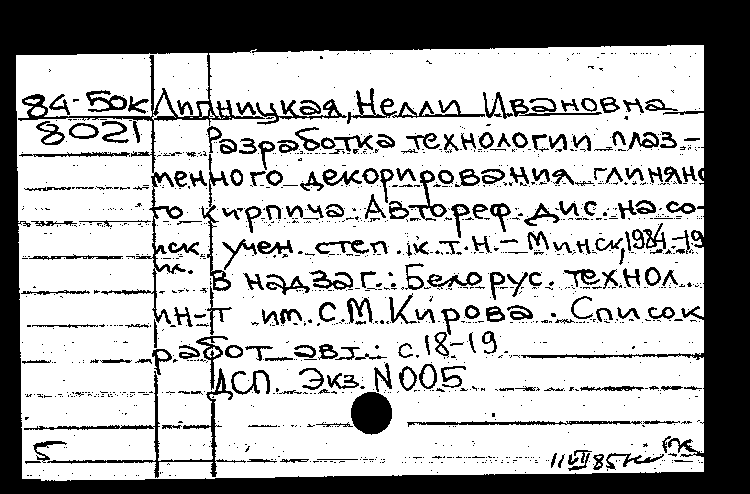 84-50к Липницкая, Нелли Ивановна
8021 Разработка технологии плаз-
менного декорирования глиняно
го кирпича. Автореф. дис. на со-
иск. учен. степ. к.т.н. - Минск, 1984.-19
В надзаг.: Белорус. технол.
ин-т им. С.М. Кирова. Список
работ авт.: с.18-19
ДСП. Экз. N 005
5
11 VII 85